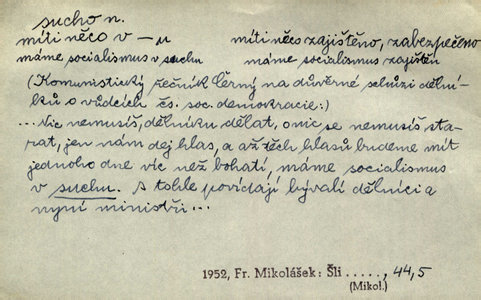 sucho n.
míti něco v -u míti něco zajištěno, zabezpečeno
máme socialismus v suchu máme socialismus zajištěn
(Komunistický řečník Černý na důvěrné schůzi dělní-
ků o vůdcích čs. soc. demokracie:)
...Nic nemusíš, dělníku dělat, o nic se nemusíš sta-
rat, jen nám dej hlas, a až těch hlasů budeme mít
jednoho dne víc než bohatí, máme socialismus
v suchu. A tohle povídají bývalí dělníci a
nyní ministři...
1952, Fr. Mikolášek: Šli ....., 44,5
(Mikol.)